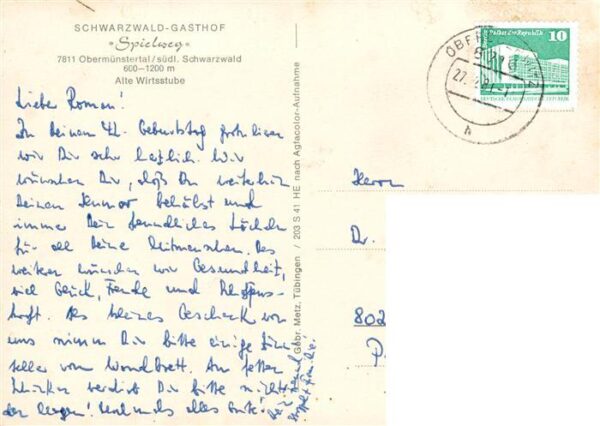 SCHWARZWALD-GASTHOF
"Spielweg"
7811 Obermünstertal/südl. Schwarzwald
600–1200 m
Alte Wirtsstube
Liebe Roman!
Zu Deinem 42. Geburtstag gratulieren
wir Dir sehr herzlich. Wir
wünschen Dir, daß Du weiterhin
Deinen Humor behältst und
immer Dein freundliches Lächeln
für all Deine Mitmenschen. Des
weiteren wünschen wir Gesundheit,
viel Glück, Freude und Schaffens-
kraft. Als kleines Geschenk von
uns nimm Dir bitte einige
teller vom Wandbrett. Am fetten
Schinken verdirb Dir bitte nicht
den Magen! Nochmals alles Gute!
Gebr. Metz, Tübingen / 203 S 41 HE nach Agfacolor-Aufnahme
10
Palast der Republik
27.
h
Herrn
Dr.
802